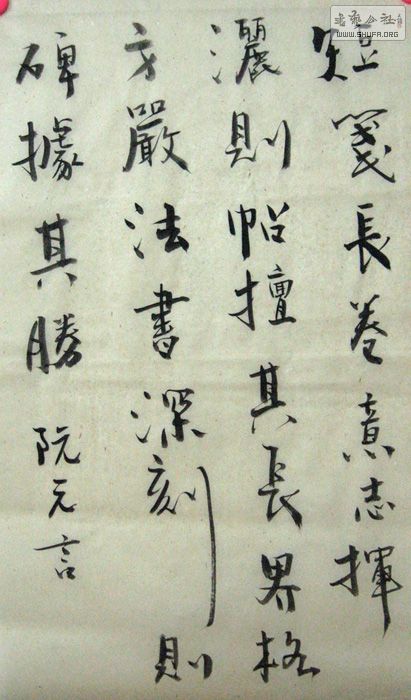 短箋長卷意志揮
灑則帖擅其長界格
方嚴法書深刻則
碑據其勝阮元言
書法公社
WWW.SHUFA.ORG